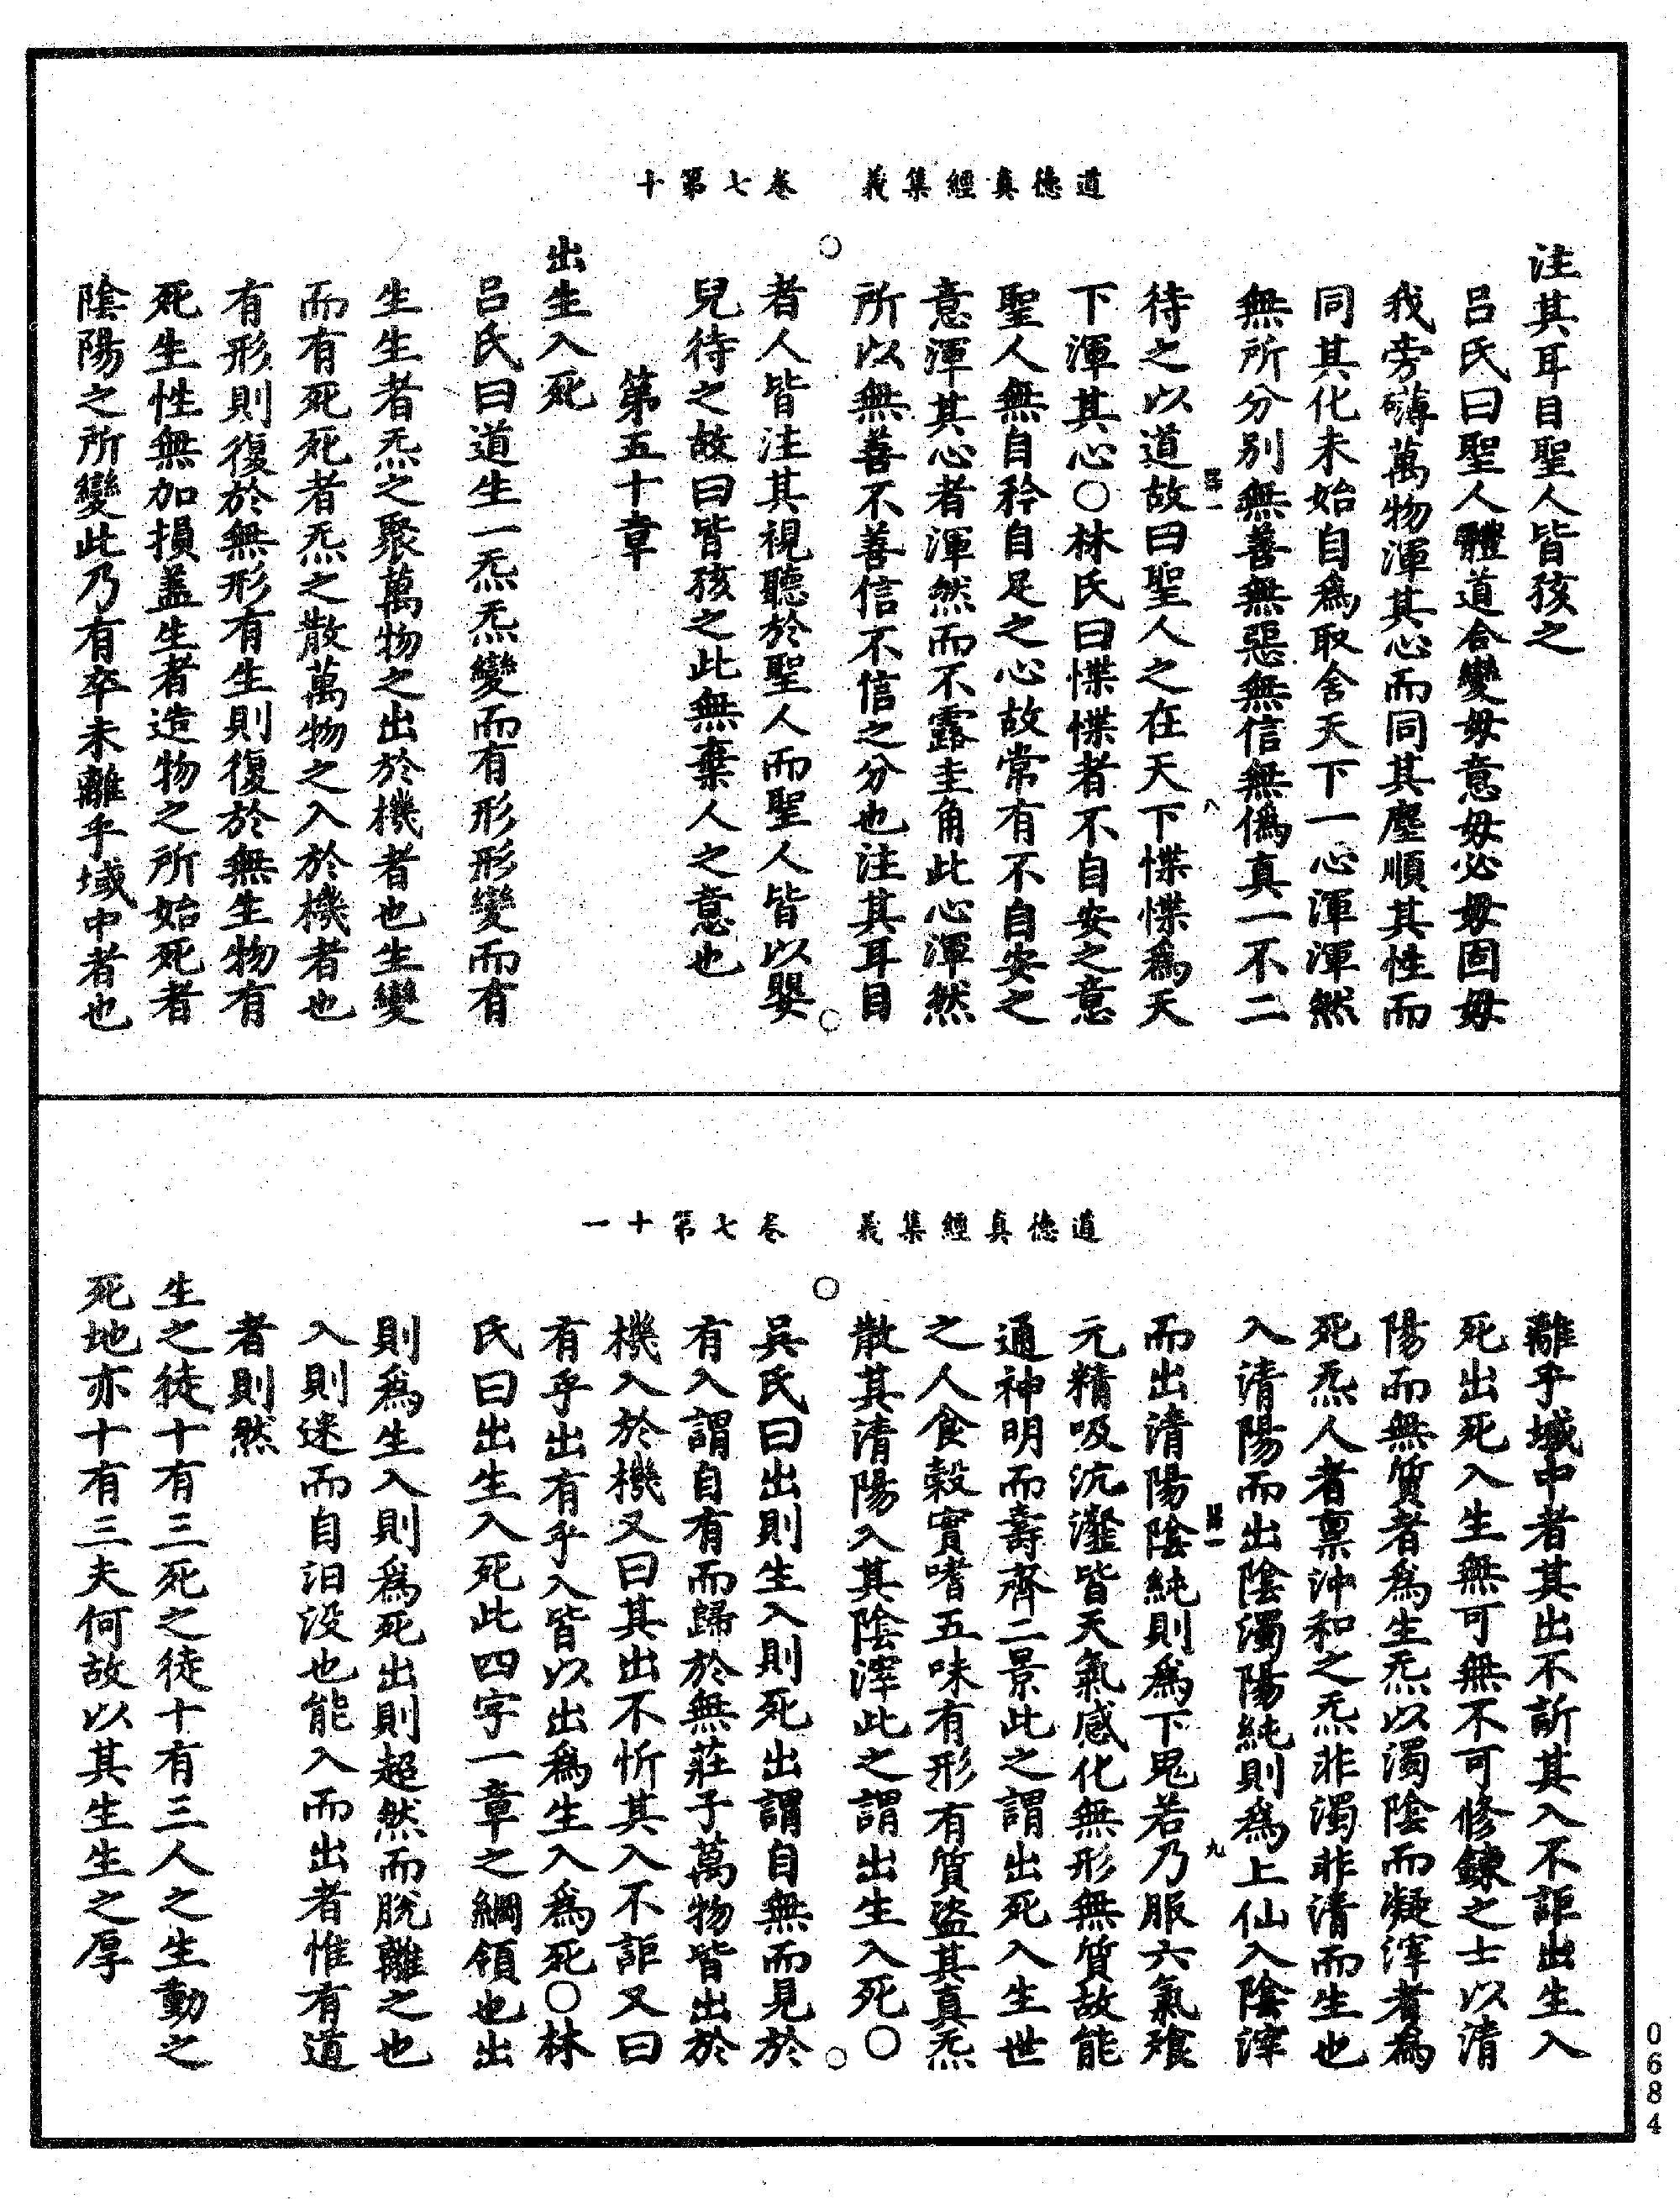 道德真經集義　卷七第十
注其耳目聖人皆孩之
呂氏曰聖人體道合變毋意毋必毋固毋
我旁礴萬物渾其心而同其塵順其性而
同其化未始自爲取舍天下一心渾渾然
無所分别無善無惡無信無僞真一不二
待之以道故曰聖人之在天下惵惵爲天
下渾其心○林氏曰惵惵者不自安之意
聖人無自矜自足之心故常有不自安之
意渾其心者渾然而不露圭角此心渾然
所以無善不善信不信之分也注其耳目
者人皆注其視聽於聖人而聖人皆以嬰
兒待之故曰皆孩之此無棄人之意也
第五十章
出生入死
呂氏曰道生一炁炁變而有形形變而有
生生者炁之聚萬物之出於機者也生變
而有死死者炁之散萬物之入於機者也
有形則復於無形有生則復於無生物有
死生性無加損盖生者造物之所始死者
陰陽之所變此乃有卒未離乎域中者也
道德真經集義　卷七第十一
離乎域中者其出不訢其入不詎出生入
死出死入生無可無不可修鍊之士以清
陽而無質者爲生炁以濁陰而凝滓者爲
死炁人者禀沖和之炁非濁非清而生也
入清陽而出陰濁陽純則爲上仙入陰滓
而出清陽陰純則爲下鬼若乃服六氣飱
元精吸沆瀣皆天氣感化無形無質故能
通神明而壽齊二景此之謂出死入生世
之人食穀實嗜五味有形有質盗其真炁
散其清陽入其陰滓此之謂出生入死○
吳氏曰出則生入則死出謂自無而見於
有入謂自有而歸於無莊子萬物皆出於
機入於機又曰其出不忻其入不詎又曰
有乎出有乎入皆以出爲生入爲死○林
氏曰出生入死此四字一章之綱領也出
則爲生入則爲死出則超然而脫離之也
入則迷而自汩没也能入而出者惟有道
者則然
生之徒十有三死之徒十有三人之生動之
死地亦十有三夫何故以其生生之厚
八
九
0684